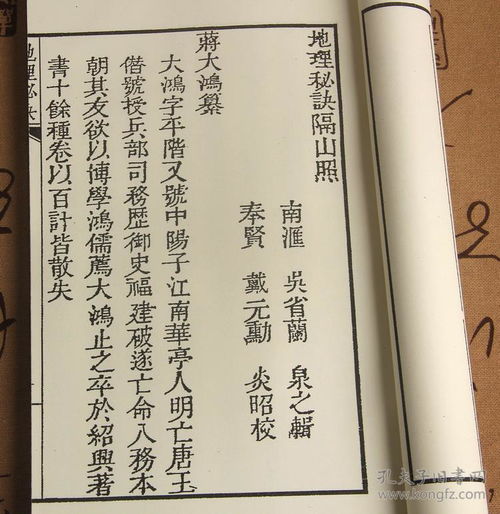 地理秘訣隔山照
南滙 吳省蘭 泉之輯
奉賢 戴元勳 炎昭校
蔣大鴻纂
大鴻字平階又號中陽子江南華亭人明亡唐王
僭號授兵部司務歷御史福建破遂亡命入務本
朝其友欲以博學鴻儒薦大鴻止之卒於紹興著
書十餘種卷以百計皆散失
地理秘訣
孔夫子旧书网
www.kongfz.com